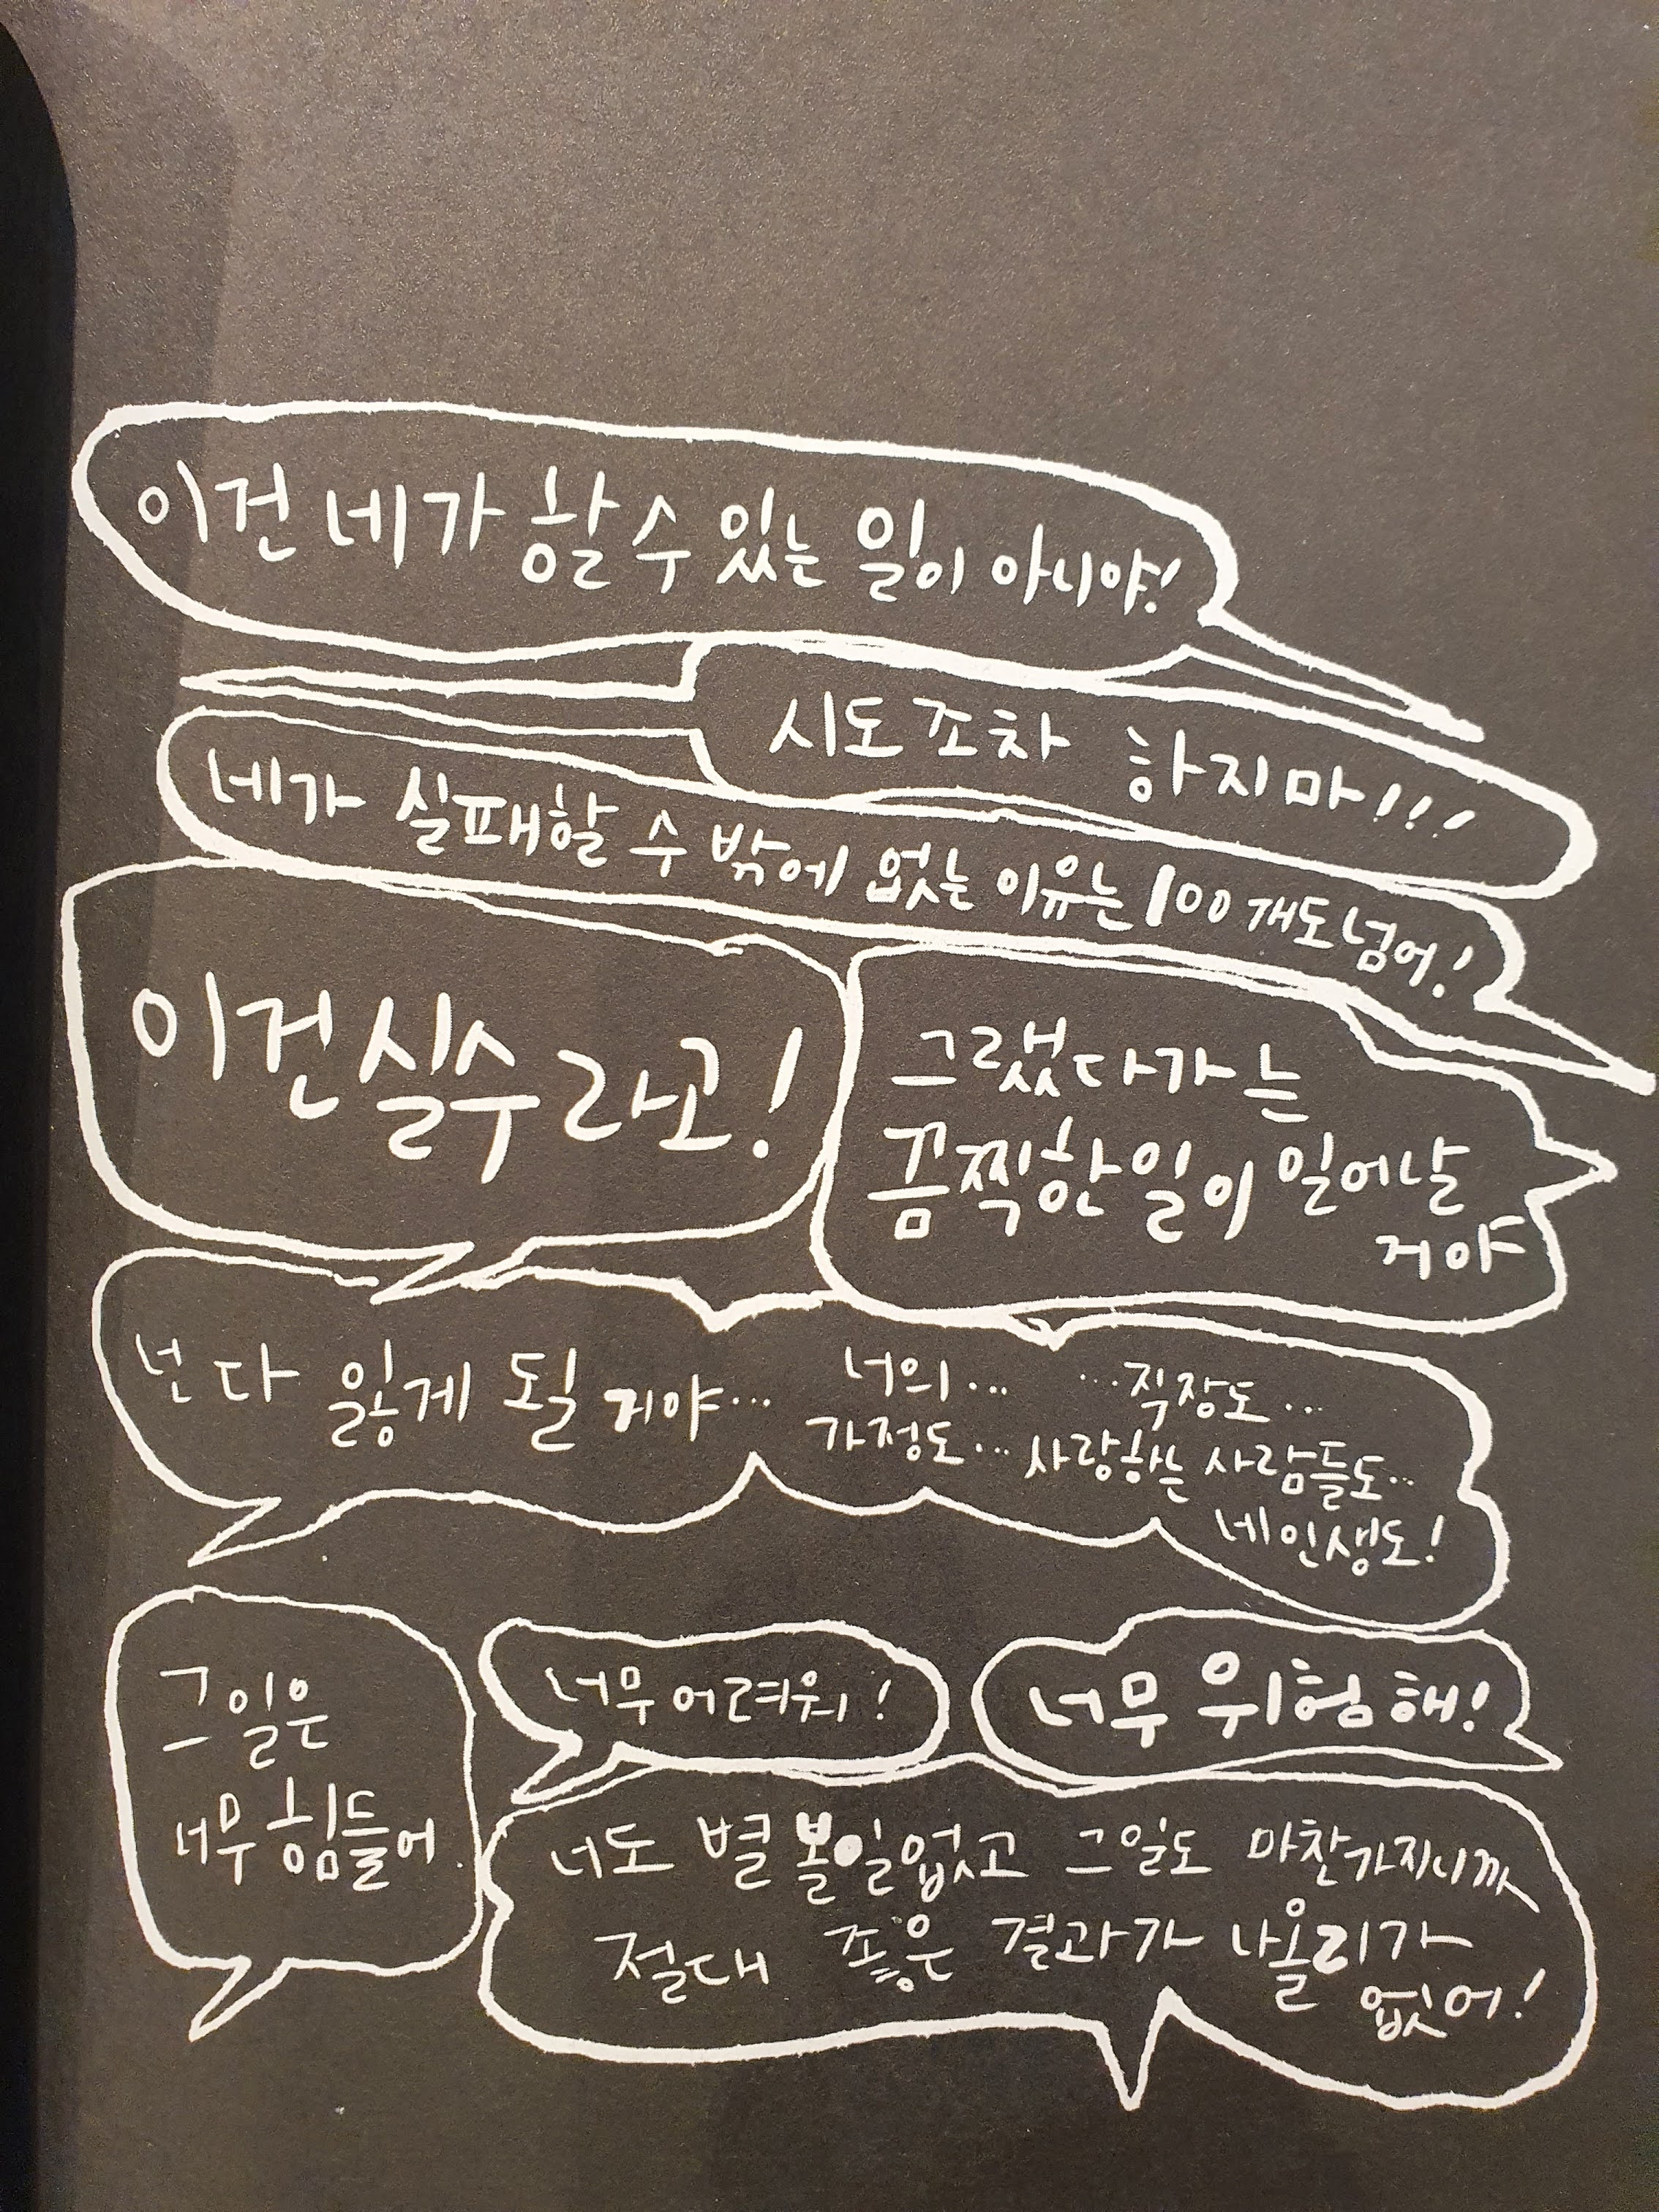 이건 네가 할 수 있는 일이 아니야!
시도조차 하지마!!!
네가 실패할 수 밖에 없는 이유는 100개도 넘어!
이건 실수라고!
그랬다가는
끔찍한 일이 일어날
거야
넌 다 잃게 될 거야...
너의... ...직장도...
가정도... 사랑하는 사람들도...
네 인생도!
그 일은
너무 힘들어.
너무 어려워!
너무 위험해!
너도 별 볼일 없고 그 일도 마찬가지니까
절대 좋은 결과가 나올리가
없어!